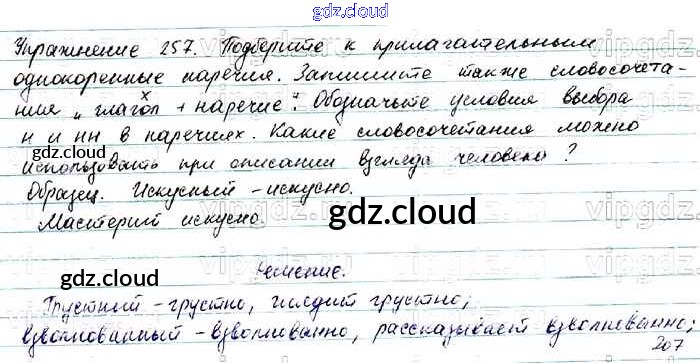 gdz.cloud
Упражнение 257. Подберите к прилагательным
однокоренные наречия. Запишите также словосочета-
ния „глагол + наречие". Обозначьте условия выбора
н и нн в наречиях. Какие словосочетания можно
gdz.cloud
использовать при описании взгляда человека?
Образец. Искусный - искусно.
Мастерит искусно.
gdz.cloud
gdz.cloud
Решение.
Грустный - грустно, глядит грустно;
взволнованный - взволнованно, рассказывает взволнованно;
207